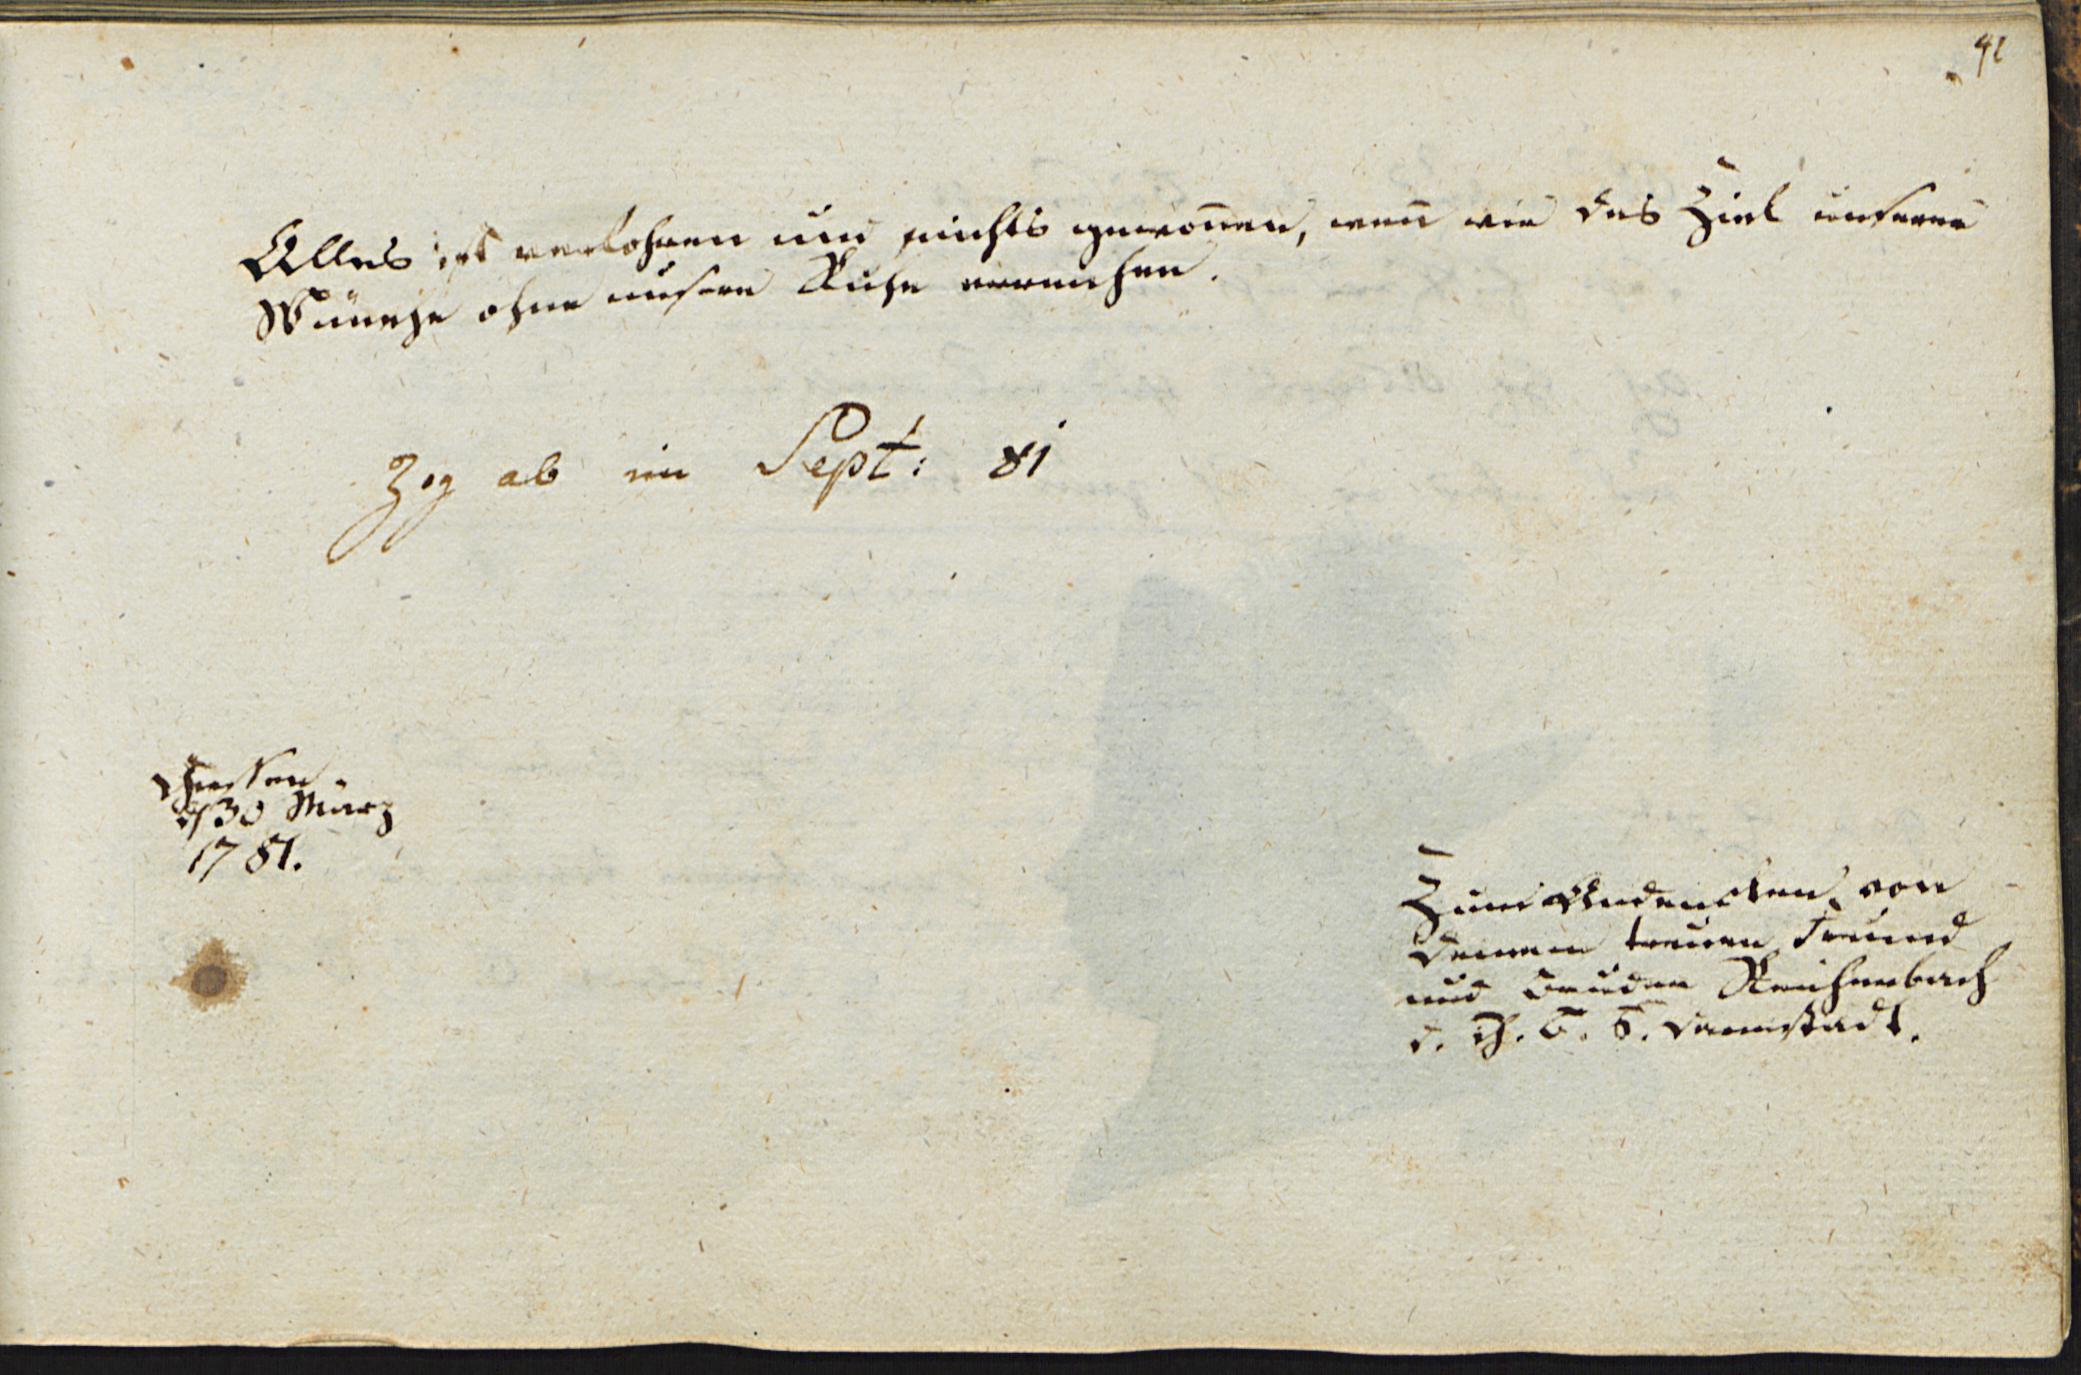 41
Alles ist verlohren und nichts gewon̄en, wen̄ wir das Ziel unserer
Wünsche ohne unsere Ruhe erreichen.
Zog ab im Sept: 81
Giessen.
d 30 März
1781.
Zum Andencken von
deinem treuen Freund
und Bruder Reichenbach
d. G. B. aus Darmstadt.